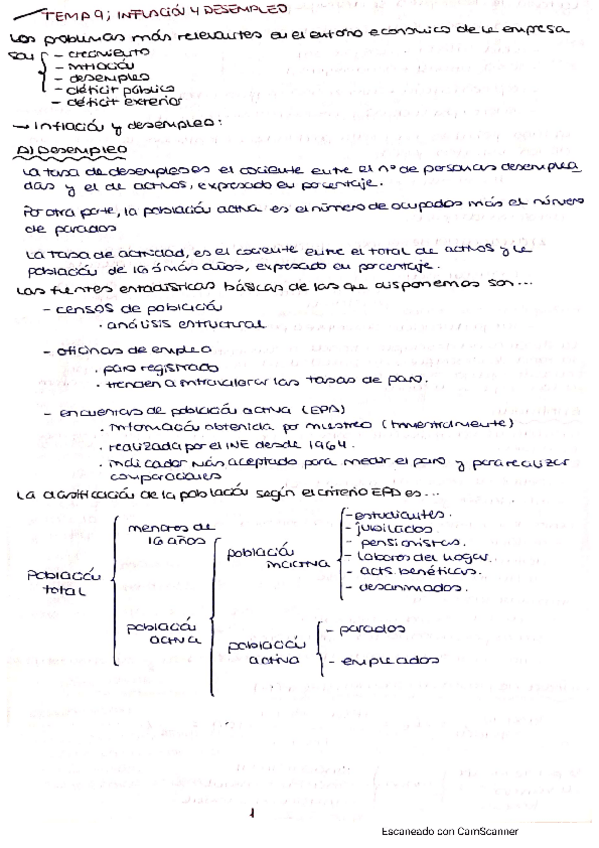 TEMA 9; INFLACIÓN Y DESEMPLEO
Los problemas más relevantes en el entorno económico de la empresa
son
- crecimiento
- inflación
- desempleo
- déficit público
- déficit exterior
→ Inflación y desempleo:
A) Desempleo
La tasa de desempleo es el cociente entre el nº de personas desemplea
das y el de activos, expresado en porcentaje.
Por otra parte, la población activa es el número de ocupados más el número
de parados
La tasa de actividad, es el cociente entre el total de activos y la
población de 16 ó más años, expresado en porcentaje.
Las fuentes estadísticas básicas de las que disponemos son...
- censos de población
· análisis estructural
- oficinas de empleo
· paro registrado
· tienden a infravalorar las tasas de paro.
- encuestas de población activa (EPA)
· información obtenida por muestreo (trimestralmente)
· realizada por el INE desde 1964.
· indicador más aceptado para medir el paro y para realizar
comparaciones
La clasificación de la población según el criterio EPA es...
Población
total
menores de
16 años
población
activa
población
inactiva
- estudiantes.
- jubilados.
- pensionistas.
- labores del hogar.
- acts. benéficas.
- desanimados.
población
activa
- parados
- empleados
1
Escaneado con CamScanner